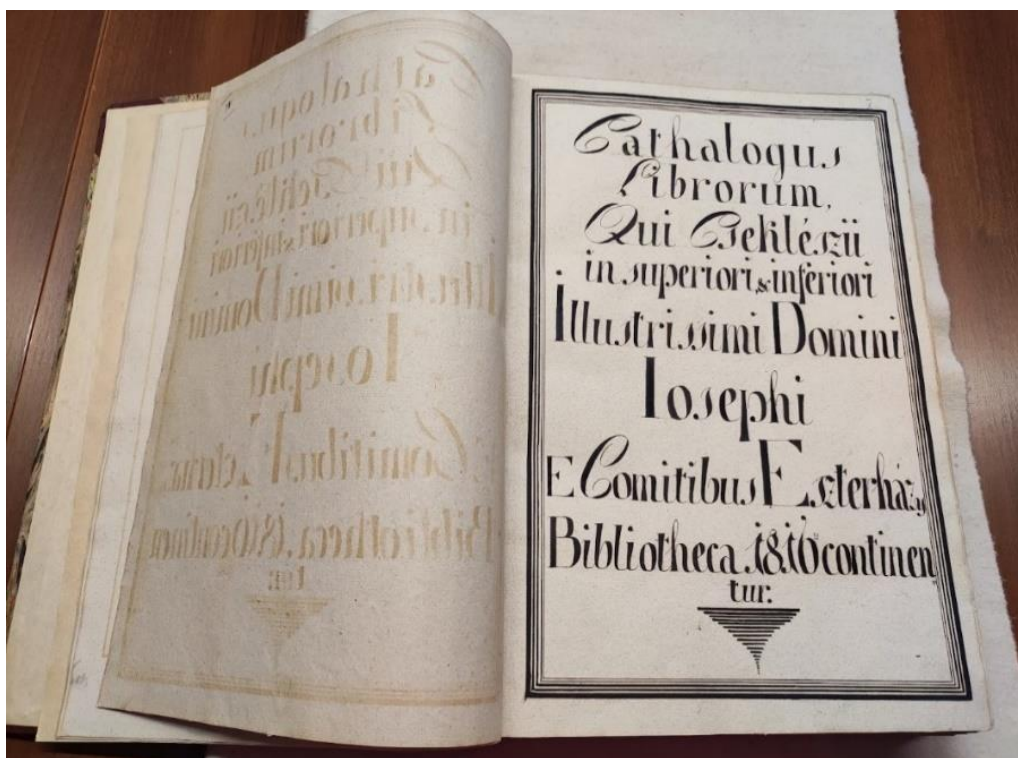 Cathalogus
Librorum,
Qui Cseklészii
in superiori & inferiori
Illustrissimi Domini
Iosephi
E Comitibus Eszterházy
Bibliotheca 1816 continen
tur.